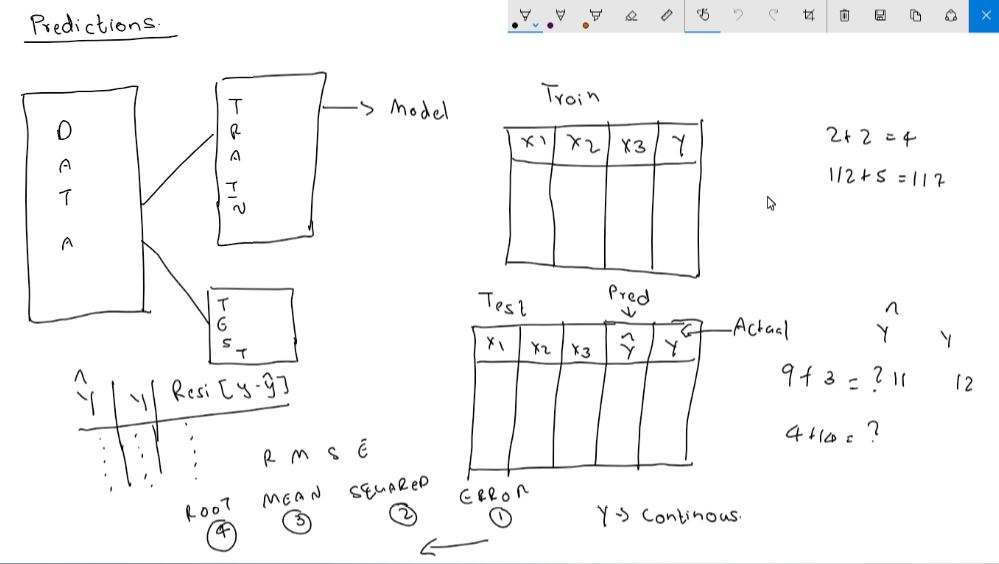 Predictions.
DATA
TRAIN
→ Model
TEST
Train
X1 X2 X3 Y
2+2=4
112+5=117
Test
Pred
X1 X2 X3 Ŷ Y
Actual
Ŷ Y
9+3=? 11 12
4+10=?
Ŷ Y Resi [y-ŷ]
R M S E
ROOT MEAN SQUARED ERROR
4 3 2 1
Y → Continous.